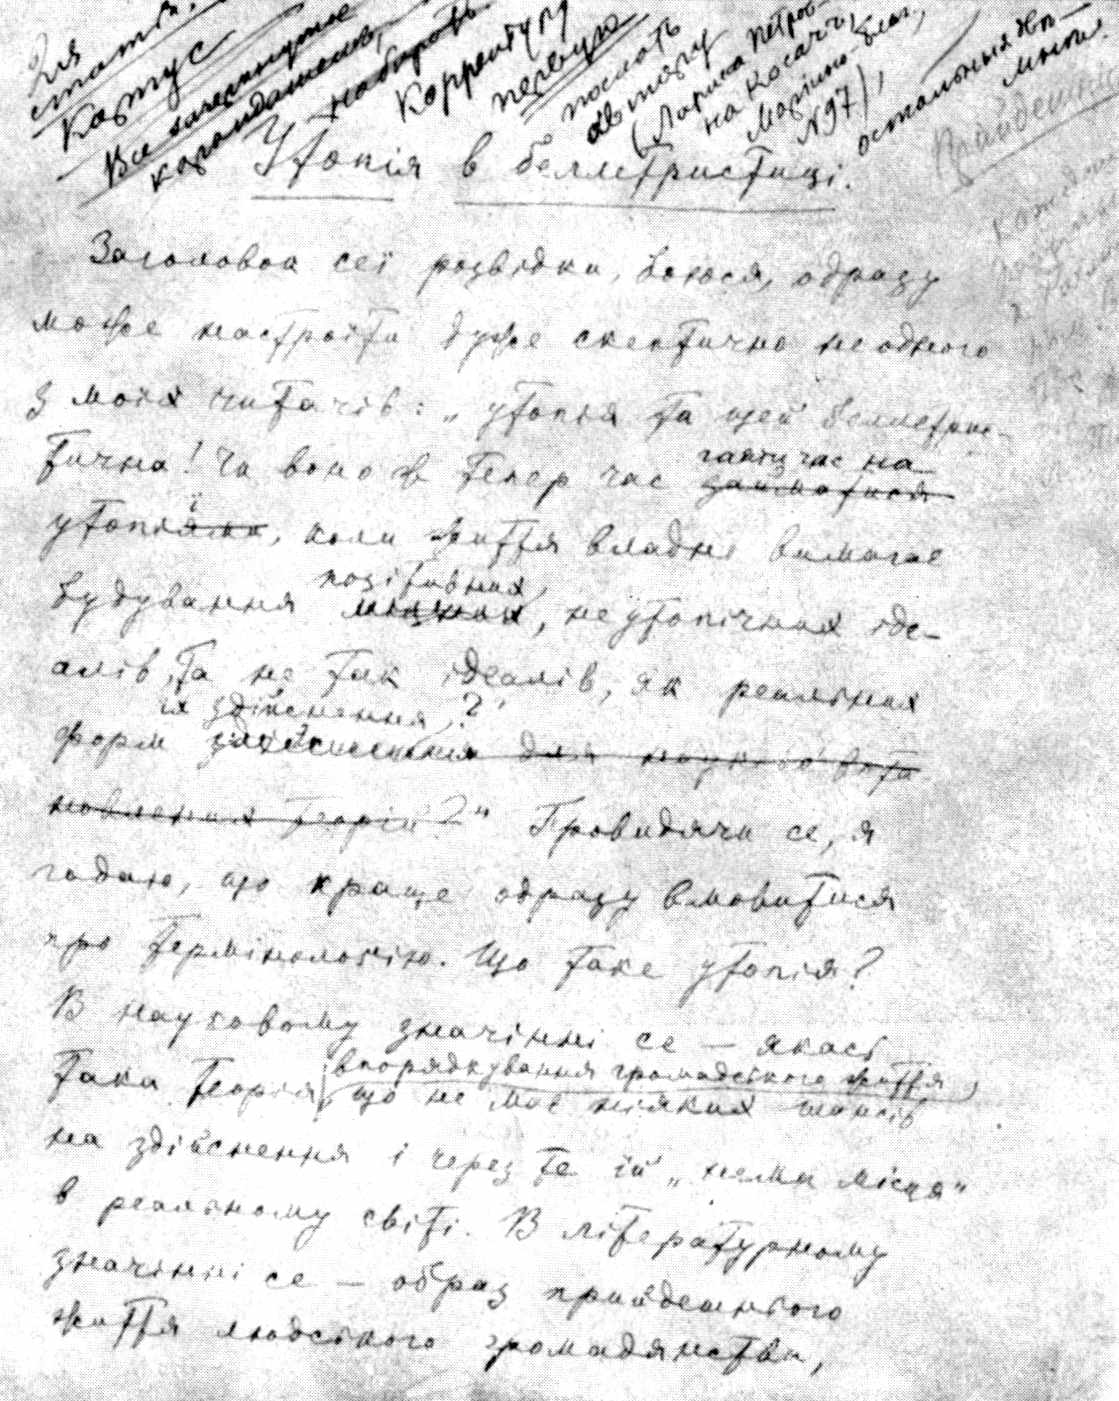 Для
статті.
Корпус
Все зачеркнутое
карандашем,
набирать
Корректуру
первую
послать
автору
(Лариса Петров-
на Косач,
Маріїнсо-Благ.,
N 97),
остальныя
мною!
Утопія в беллетристиці.
Заголовок сеї розвідки, боюся, одразу
може настроїти дуже скептично не одного
з моїх читачів: „утопія та щей беллетрис-
тична! Чи воно ж тепер час
гаяти час на
займатися
утопіями, ї коли життя владно вимагає
позітивних,
будування міцних, не утопічних іде-
алів, та не так ідеалів, як реальних
їх здійснення?"
форм здійснення для науково вста
новлених теорій?" Провидячи се, я
гадаю, що краще одразу вмовитися
про термінологію. Що таке утопія?
В науковому значінні се — якась
впорядкування громадського життя,
така теорія, що не має ніяких шансів
на здійснення і через те їй „нема місця"
в реальному світі. В літературному
значінні се — образ прийдешнього
життя людського громадянства,